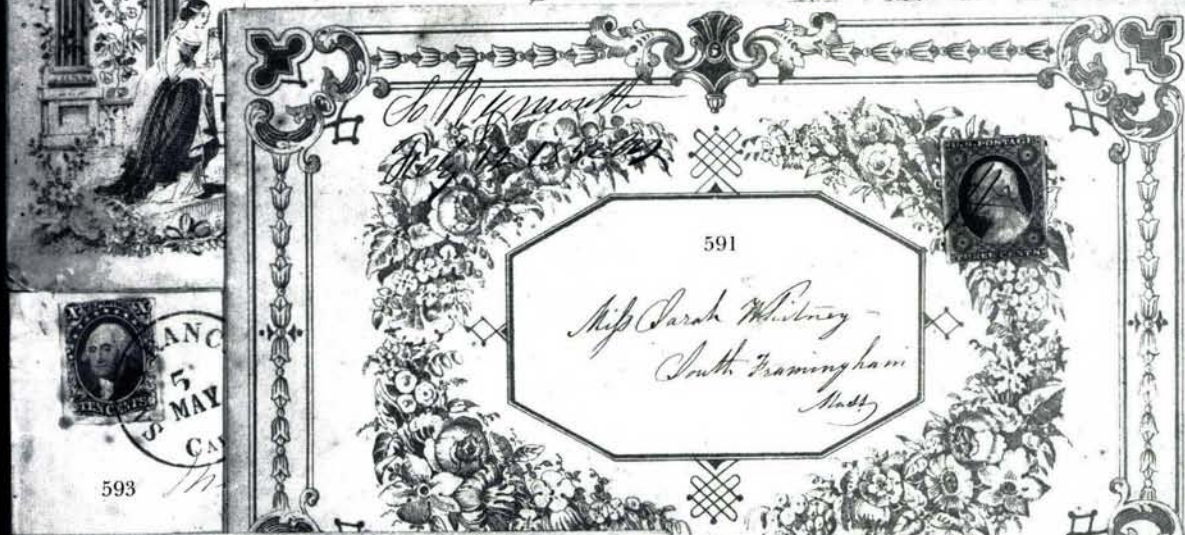 So Weymouth
591
U.S. POSTAGE
THREE CENTS
Miſs Sarah Whitney
South Framingham
Mass
X X
TEN CENTS
ANC
5
MAY
S
CA
593